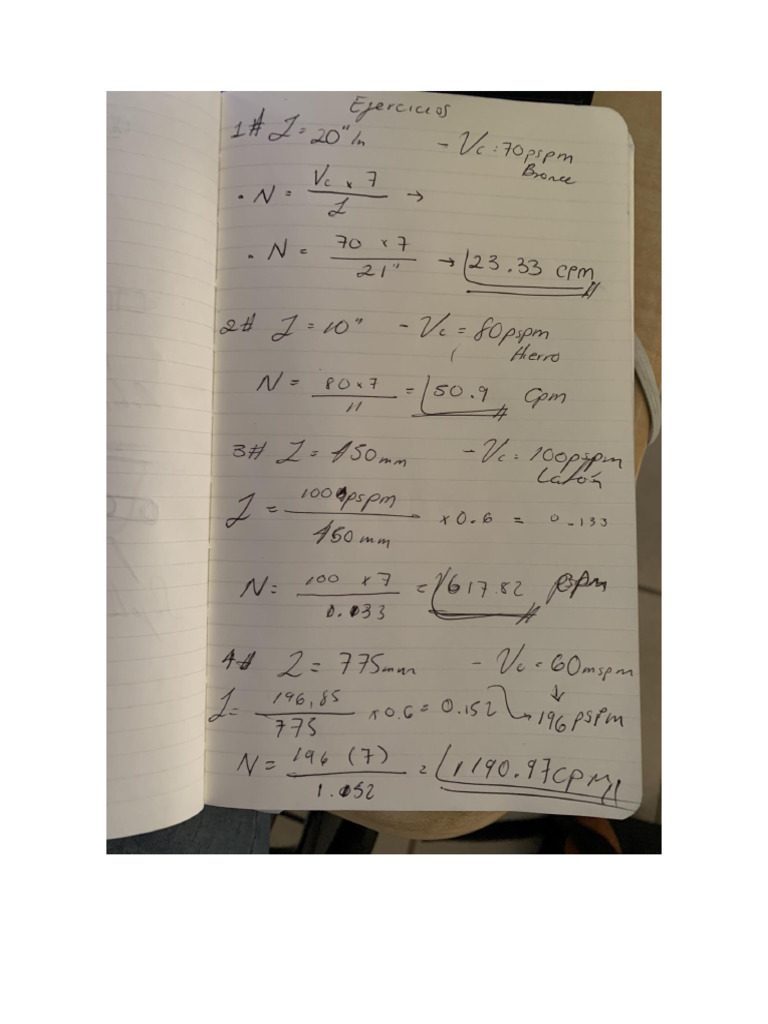 Ejercicios
1# L = 20" In - Vc: 70 pspm
Bronce
• N = Vc x 7 / L →
• N = 70 x 7 / 21" → 23.33 cpm
2# L = 10" - Vc = 80 pspm
Hierro
N = 80 x 7 / 11 = 50.9 Cpm
3# L = 450 mm - Vc = 100 pspm
Latón
L = 100 pspm / 450 mm x 0.6 = 0.133
N = 100 x 7 / 0.033 = 617.82 pspm
4# L = 775 mm - Vc = 60 mspm
L = 196,85 / 775 x 0.6 = 0.152 → 196 pspm
N = 196 (7) / 1.052 = 1190.97 cpm